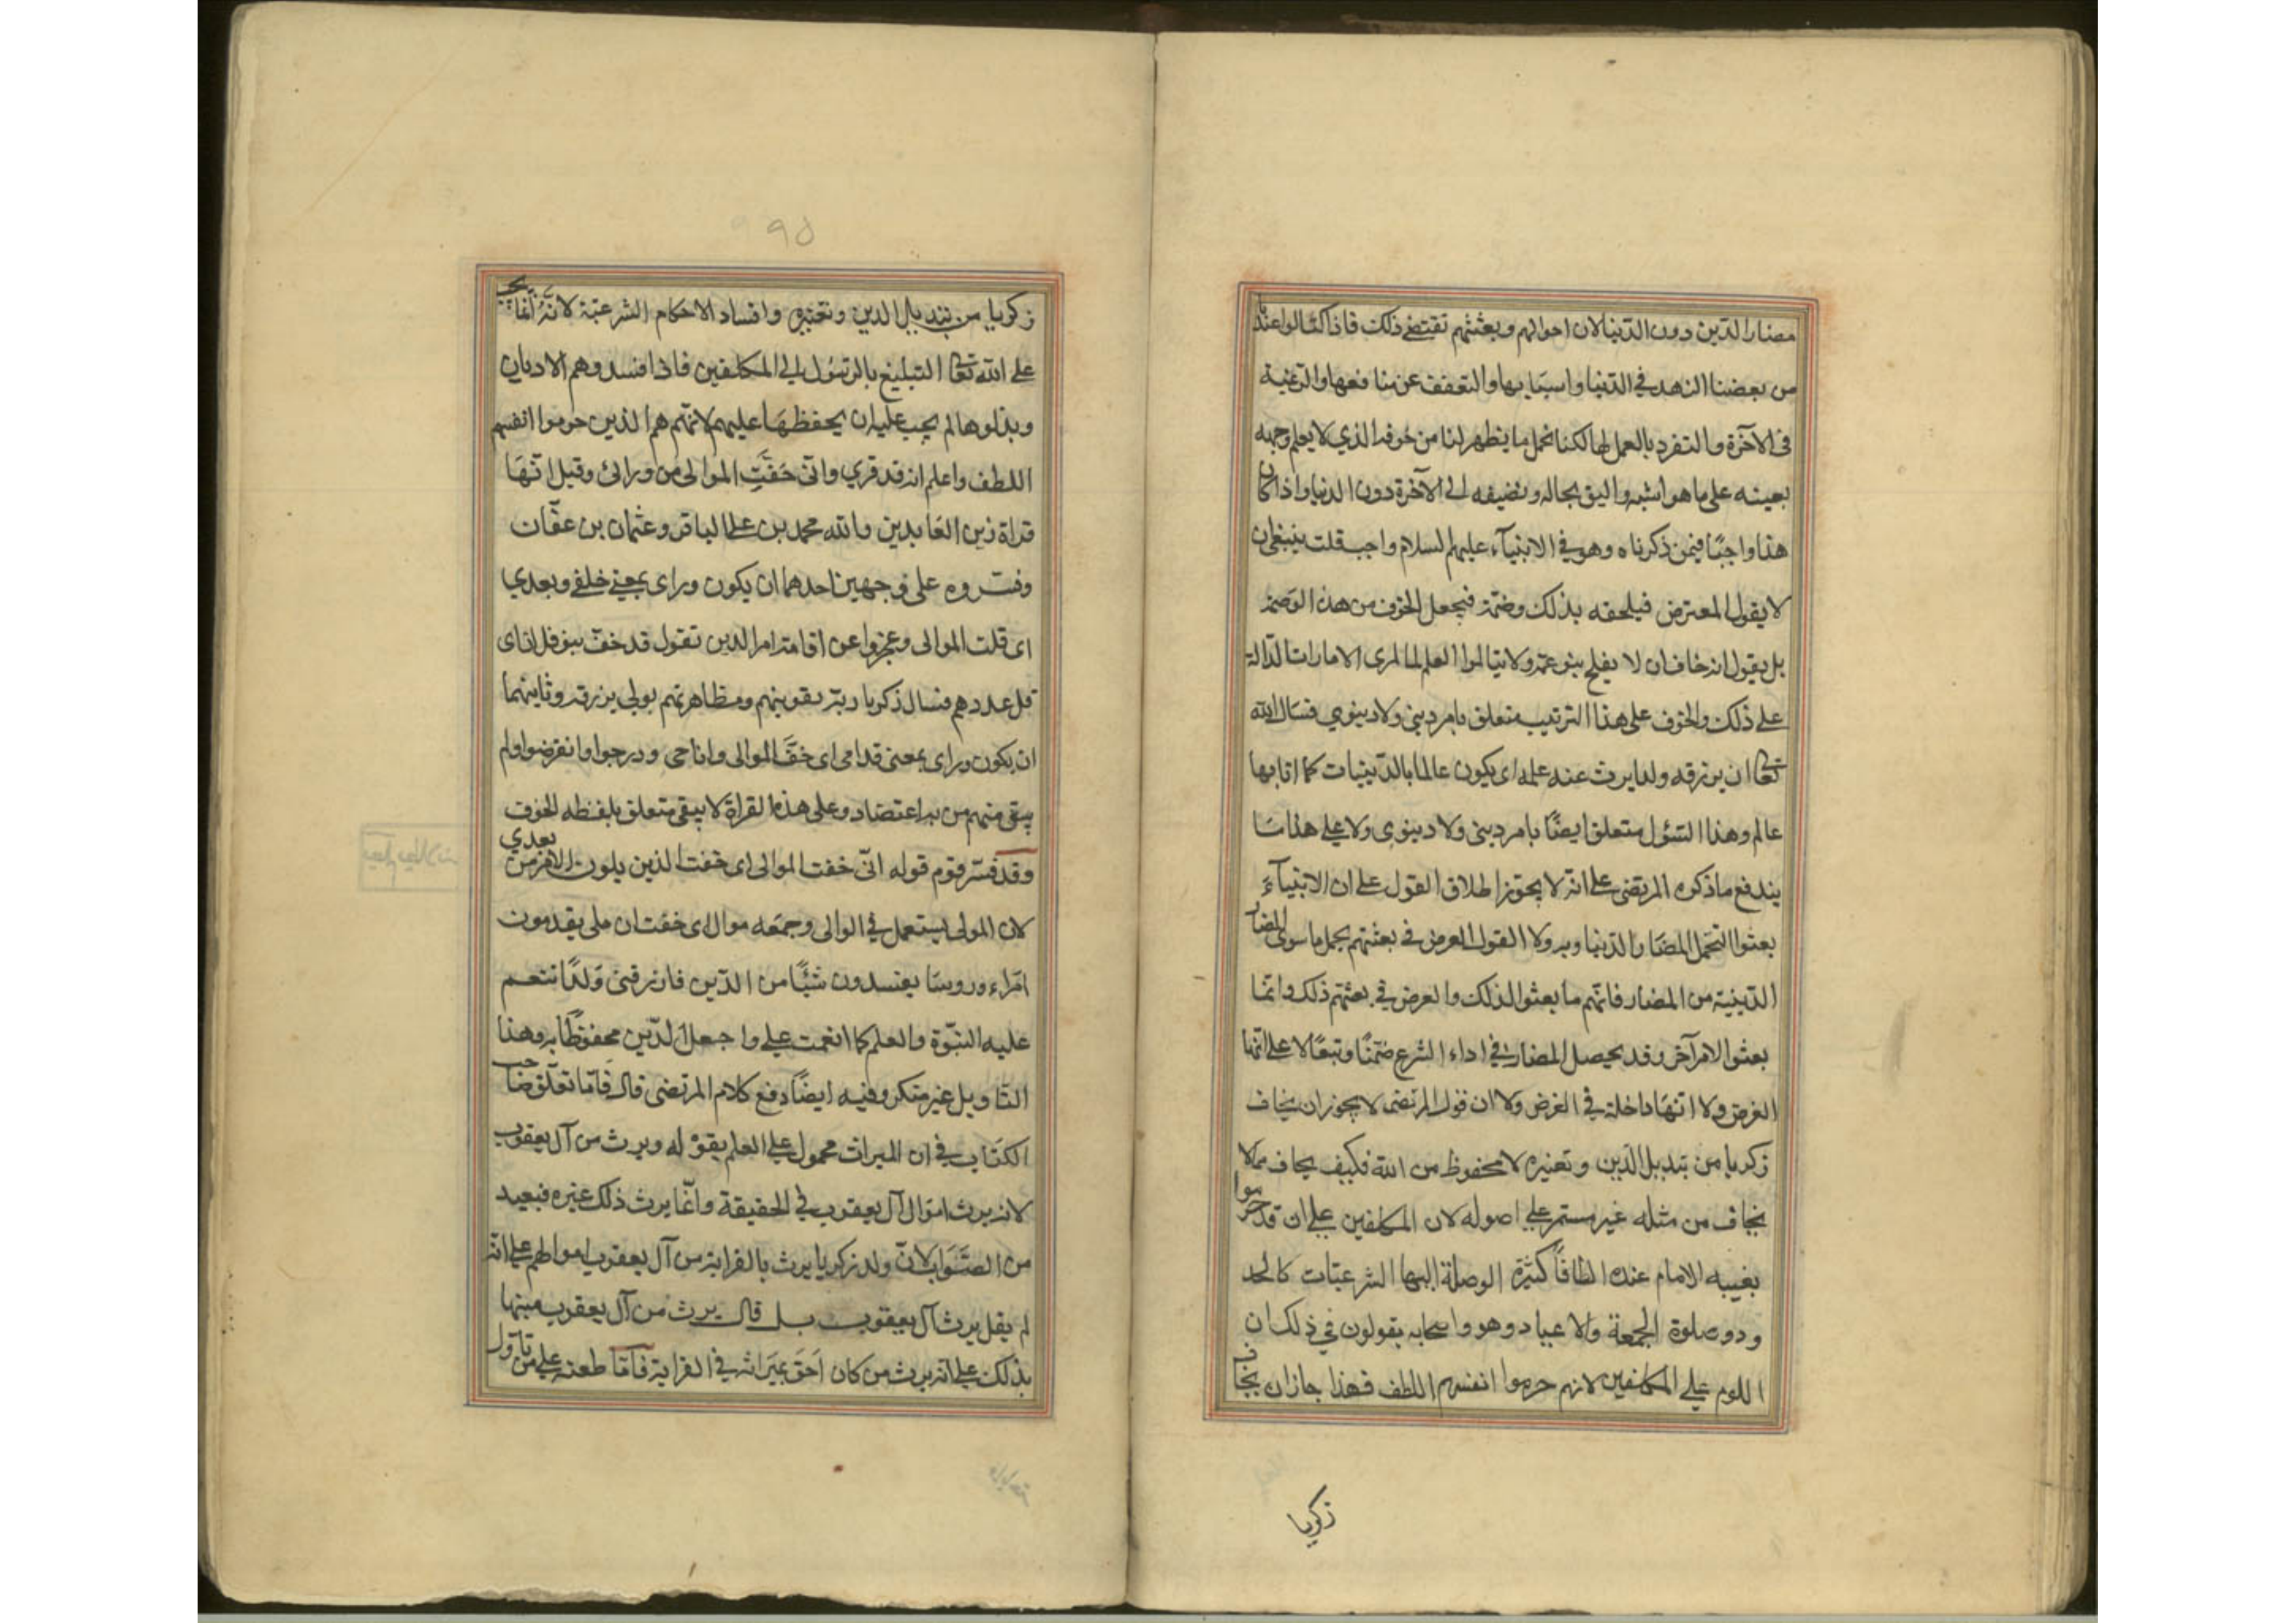 مضار الدين دون الدنيا لان احوالهم وبعثتهم تقتضي ذلك فاذا كنا لو اعتدنا
من بعضنا الزهد في الدنيا واسبابها والتعفف عن منافعها والرغبة
في الآخرة والتفرد بالعمل لها لكنا نحمل ما يظهر لنا من خوفه الذي لا يعلم وجهه
بعينه على ما هو اشبه واليق بحاله ونضيفه الى الآخرة دون الدنيا واذا كان
هذا واجبًا فيمن ذكرناه وهو في الانبيآء عليهم السلام واجب قلت ينبغي ان
لا يقول المعترض فيلحقه بذلك وصمة فيجعل الخوف من هذه الوصمة
بل يقول انه خاف ان لا يفلح بنو عمه ولا يتعلموا العلم لما رأى الامارات الدالة
على ذلك والخوف على هذا الترتيب متعلق بامر ديني ولا دينوي فسال الله
تعالى ان يرزقه ولدا يرث عنه علمه اى يكون عالما بالدينيات كما انا بها
عالم وهذا السئول متعلق ايضًا بامر ديني ولا دينوى ولا على هذا
يندفع ما ذكره المرتضى على انه لا يجوز اطلاق القول على ان الانبيآء
بعثوا لتحمل المضار الدنياوية ولا القول الغرض في بعثتهم يحمل ما سوى المضار
الدينية من المضار فانهم ما بعثوا لذلك والغرض في بعثتهم ذلك وانما
بعثوا لامر آخر وقد يحصل المضار في اداء الشرع ضمنًا وتبعًا لا على انها
الغرض ولا انها داخلة في الغرض ولا ان قول المرتضى لا يجوز ان يخاف
زكريا من تبديل الدين وتغيره لا محفوظ من الله فكيف يخاف مما لا
يخاف من مثله غير مستمر على اصوله لان المكلفين على ان قد حرموا
بغيبه الامام عنده الطافًا كثيرة الوصلة اليها الشرعيات كالحد
ودون صلوة الجمعة والاعياد وهو واصحابه يقولون في ذلك ان
اللوم على المكلفين لانهم حرموا انفسهم اللطف فهذا جاز ان يخاف
زكريا
٩٥
زكريا من تبديل الدين وتغيره وافساد الاحكام الشرعية لانه انما يجب
على الله تعالى التبليغ بالرسول الى المكلفين فاذا افسدوهم الاديان
وبدلوها لم يجب عليه ان يحفظها عليهم لانهم هم الذين حرموا انفسهم
اللطف واعلم انه قد قري واني خَفَّتِ الموالى من ورائى وقيل انها
قراة زين العابدين وابنه محمد بن علي الباقر وعثمان بن عفان
وفسروه على وجهين احدهما ان يكون وراى بمعني خلفي وبعدي
اى قلت الموالى وعجزوا عن اقامة امر الدين تقول قد خف بنو فلان اى
قل عددهم فسال زكريا ربه تقويتهم ومظاهرتهم بولي يرزقه وثانيهما
ان يكون وراى بمعنى قدامى اى خفَّ الموالى وانا حى ودرجوا وانقرضوا ولم
يبقى منهم من به اعتضاد وعلى هذه القراة لا يبقى متعلق بلفظه الخوف
وقد فسر قوم قوله انى خفت الموالى اى خفت الذين يلون الامر من بعدي
لان المولى يستعمل في الوالى وجمعه موال اى خفت ان ملى يقدمون
امراء وروسا يفسدون شيًا من الدين فارزقنى ولدًا تنعم
عليه النبوة والعلم كما انعمت علي واجعل الدين محفوظًا به وهذا
التاويل غير منكر وفيه ايضًا دفع كلام المرتضى قال فاما تعلق صاحب
الكتاب في ان الميراث محمول على العلم بقوله ويرث من آل يعقوب
لانه يرث اموال آل يعقوب في الحقيقة وانما يرث ذلك غيره فبعيد
من الصواب لان ولد زكريا يرث بالقرابة من آل يعقوب اموالهم على انه
لم يقل يرث آل يعقوب بل قال يرث من آل يعقوب منبها
بذلك على انه يرث من كان احق بميراثه في القرابة فاما طعنه على من تاول